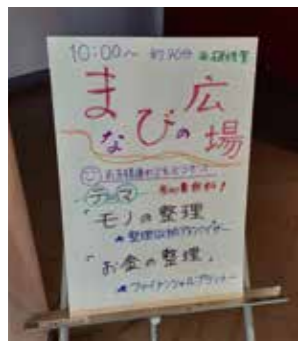 10:00〜 約90分 @研修室
まなびの広場
テーマ 参加費無料!
「モノの整理」
整理収納アドバイザー
「お金の整理」
ファイナンシャルプランナー